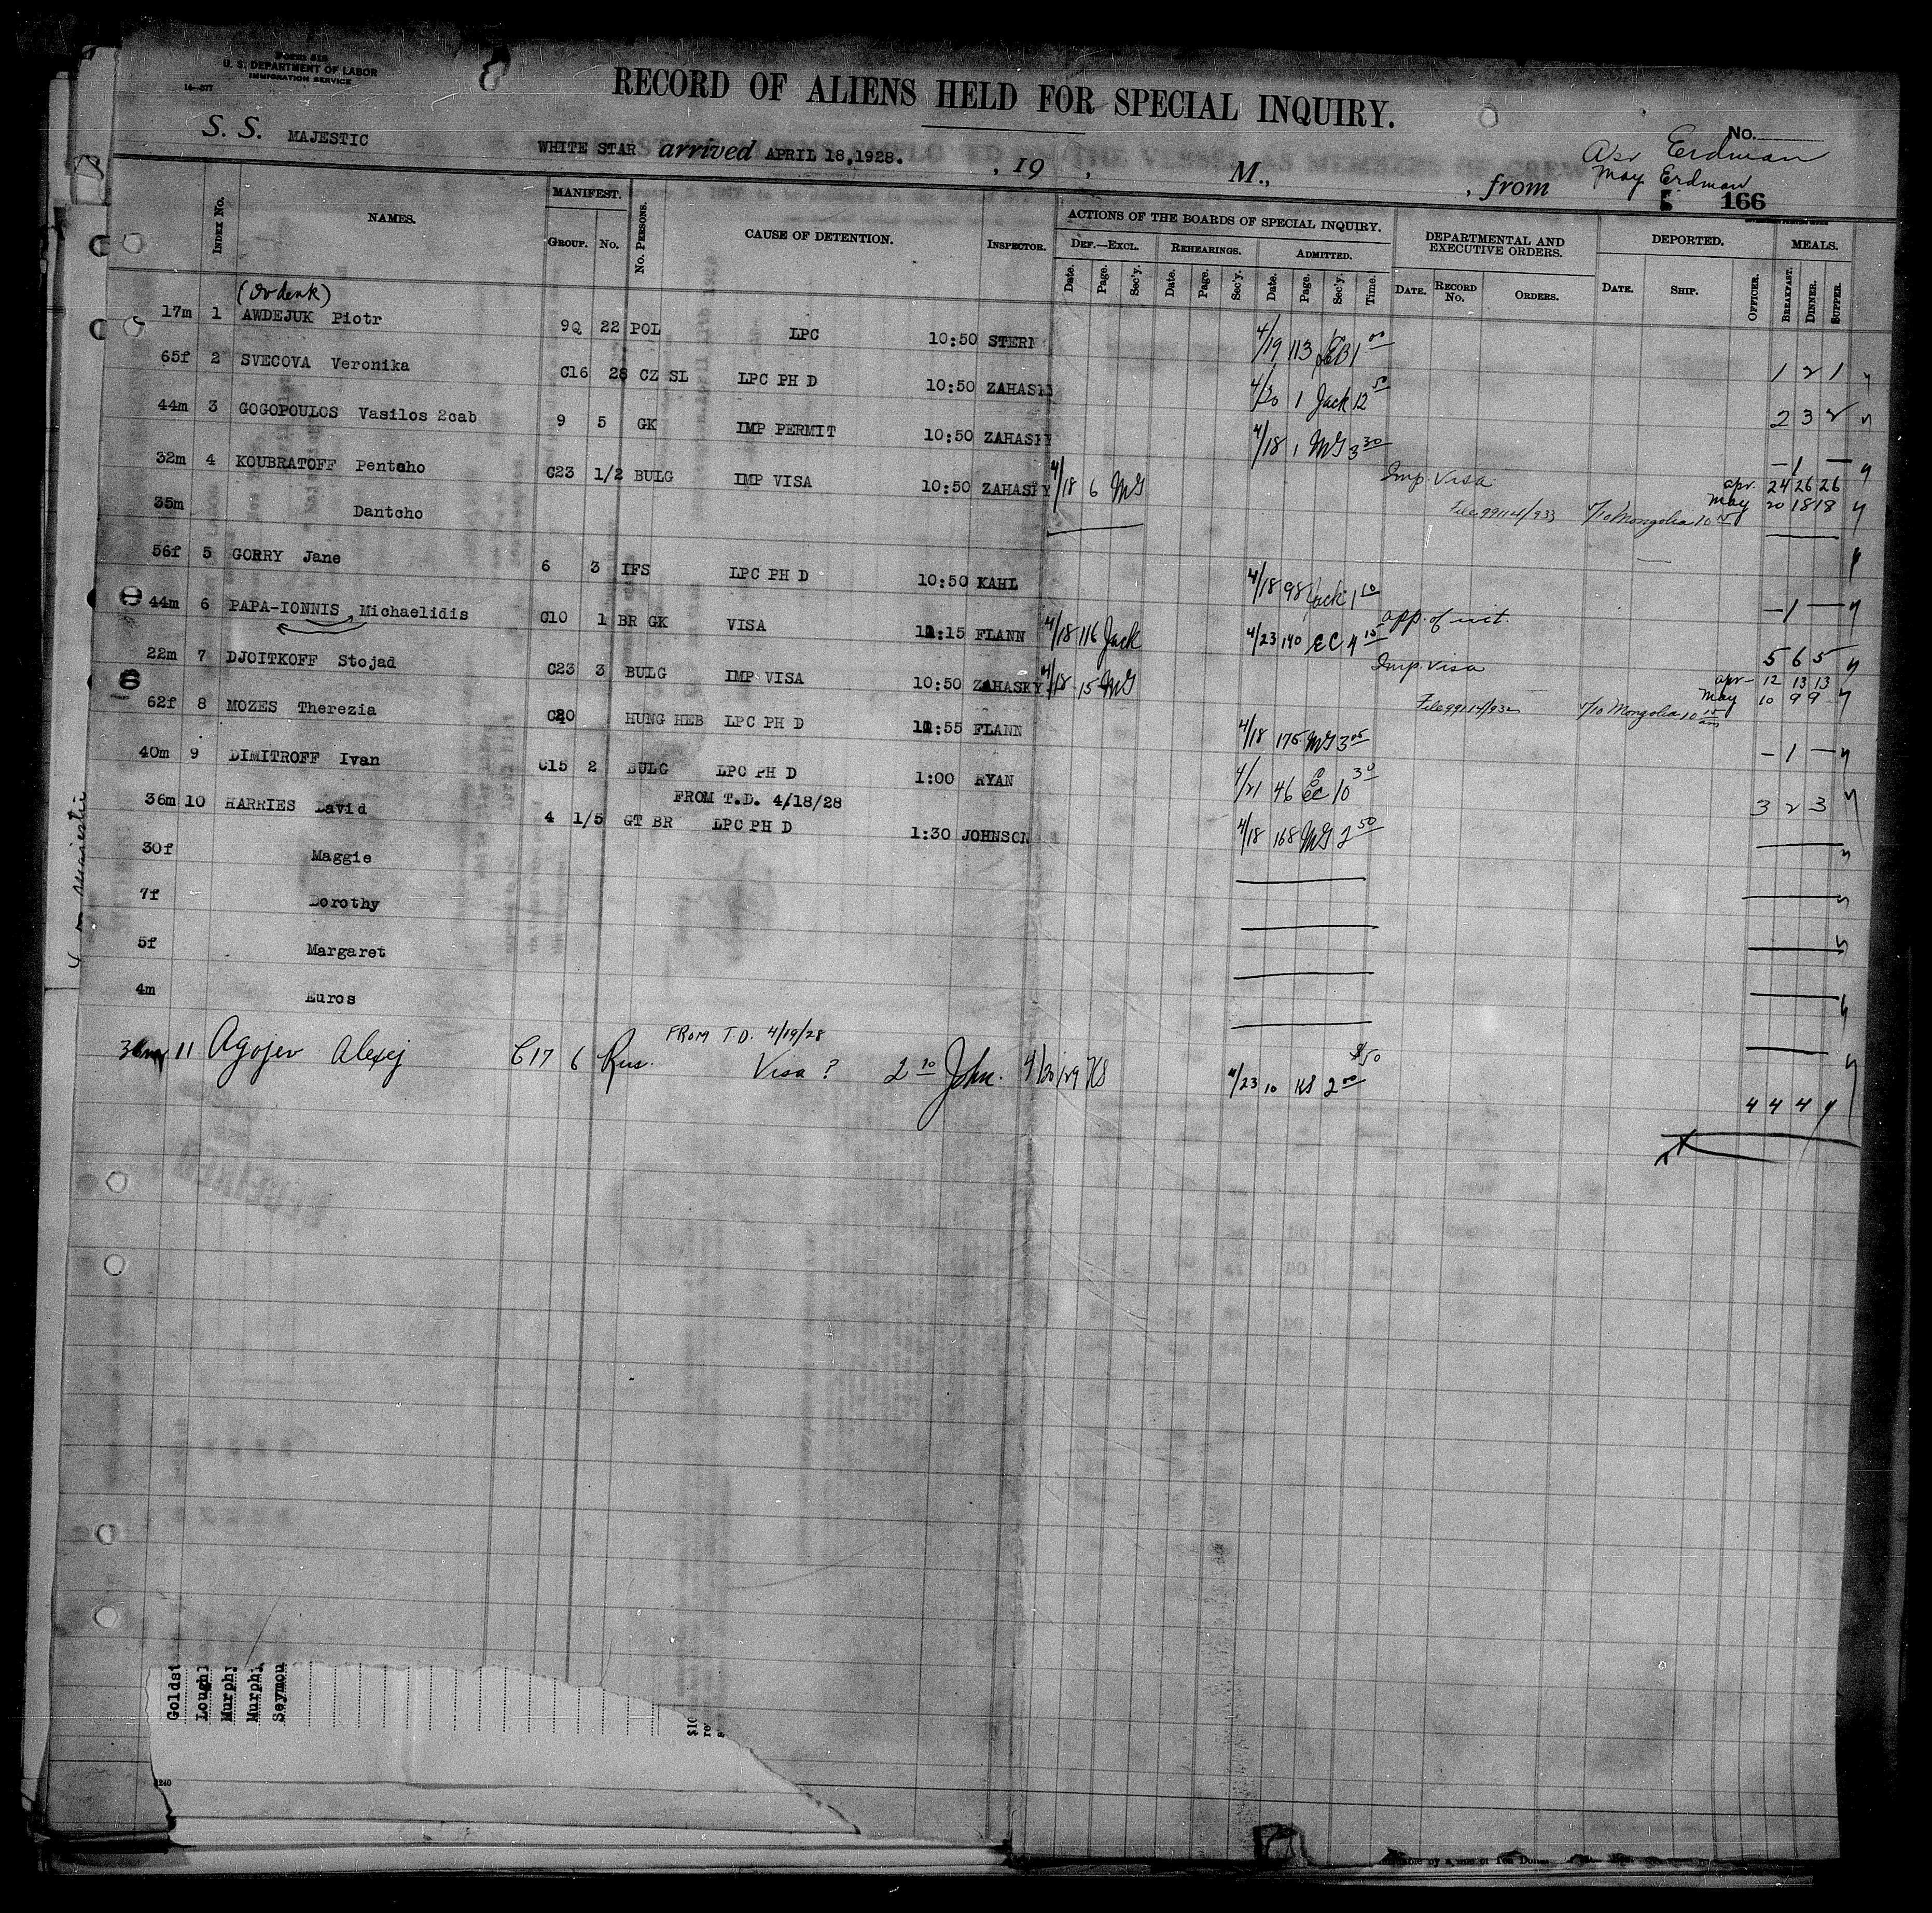 Form 518
U. S. DEPARTMENT OF LABOR
IMMIGRATION SERVICE
14—577
RECORD OF ALIENS HELD FOR SPECIAL INQUIRY.
No.
S. S. MAJESTIC WHITE STAR arrived APRIL 18,1928. , 19 , M., , from
Erdman
May Erdman
166
INDEX NO. NAMES. MANIFEST. GROUP. NO. NO. PERSONS. CAUSE OF DETENTION. INSPECTOR.
ACTIONS OF THE BOARDS OF SPECIAL INQUIRY. DEPARTMENTAL AND EXECUTIVE ORDERS. DEPORTED. MEALS.
DEF.—EXCL. REHEARINGS. ADMITTED.
Date. Page. Sec'y. Date. Page. Sec'y. Date. Page. Sec'y. Time. DATE. RECORD NO. ORDERS. DATE. SHIP. OFFICER. BREAKFAST. DINNER. SUPPER.
17m 1 AWDEJUK Piotr 9Q 22 POL LPC 10:50 STERN 4/19 113 1 00 1 2 1
65f 2 SVECOVA Veronika C16 28 CZ SL LPC PH D 10:50 ZAHASKY 4/20 1 Jack 12 50 2 3 2
44m 3 GOGOPOULOS Vasilos 2cab 9 5 GK IMP PERMIT 10:50 ZAHASKY 4/18 1 MG 3 30 — 1 —
32m 4 KOUBRATOFF Pentcho C23 1/2 BULG IMP VISA 10:50 ZAHASKY 4/18 6 MG Imp. Visa apr. 24 26 26
May 20 18 18
35m Dantcho File 99114/933 Mongolia 10
56f 5 GORRY Jane 6 3 IFS LPC PH D 10:50 KAHL 4/18 98 Jack 1 10 — 1 —
44m 6 PAPA-IONNIS Michaelidis C10 1 BR GK VISA 11:15 FLANN 4/18 116 Jack 4/23 140 EC 4 15 app. of wit. 5 6 5
22m 7 DJOITKOFF Stojad C23 3 BULG IMP VISA 10:50 ZAHASKY 4/18 15 MG Imp. Visa apr— 12 13 13
May 10 9 9
File 99114/932 Mongolia 10 15 am
62f 8 MOZES Therezia C20 HUNG HEB LPC PH D 11:55 FLANN 4/18 175 MG 3 05 — 1 —
40m 9 DIMITROFF Ivan C15 2 BULG LPC PH D 1:00 RYAN 4/21 46 EC 10 30 3 2 3
FROM T.D. 4/18/28
36m 10 HARRIES David 4 1/5 GT BR LPC PH D 1:30 JOHNSON 4/18 168 MG 2 50
30f Maggie
7f Dorothy
5f Margaret
4m Euros
FROM T.D. 4/19/28
11 Agojev Alexej C17 6 Rus. Visa ? 2 10 John. 4/20 129 KS 4/23 10 KS 2 00 $50 4 4 4
RECEIVED
Goldst
Loughl
Murphy
Murphy
Seymou
$10
1240